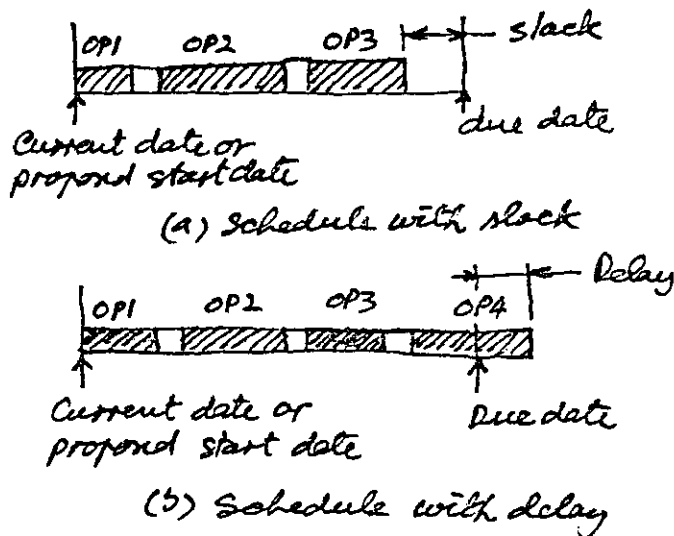 OP1 OP2 OP3 slack
due date
Current date or
proposed start date
(a) Schedule with slack
Delay
OP1 OP2 OP3 OP4
Current date or
proposed start date
Due date
(b) Schedule with delay